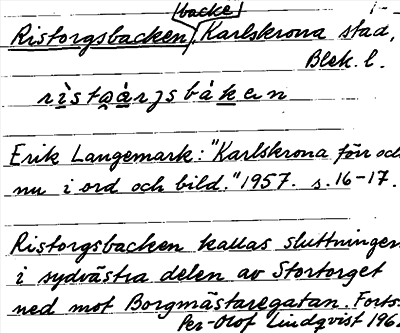 backe
Ristorgsbacken, Karlskrona stad,
Blek. l.
rìstǫàrjsbákan
Erik Langemark: "Karlskrona förr och
nu i ord och bild." 1957. s. 16-17.
Ristorgsbacken kallas sluttningen
i sydvästra delen av Stortorget
ned mot Borgmästaregatan. Forts.
Per-Olof Lindqvist 196